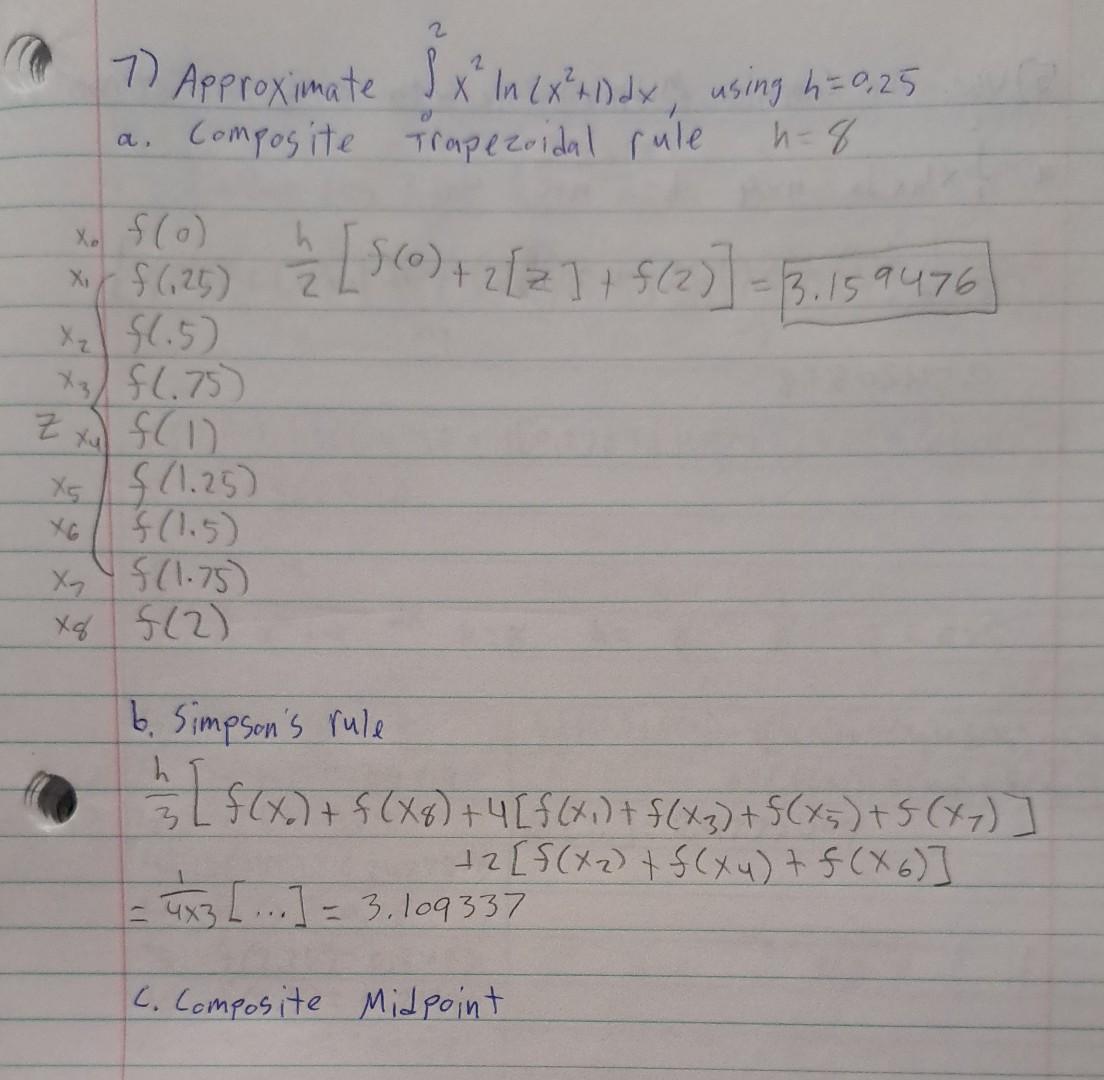 7) Approximate ∫₀² x² ln(x²+1)dx, using h=0.25
a. Composite Trapezoidal rule h=8
x₀ f(0)
x₁ f(.25) h/2 [f(0)+2[z]+f(2)] = 3.159476
x₂ f(.5)
x₃ f(.75)
z x₄ f(1)
x₅ f(1.25)
x₆ f(1.5)
x₇ f(1.75)
x8 f(2)
b. Simpson's rule
h/3 [f(x₀)+f(x8)+4[f(x₁)+f(x₃)+f(x₅)+f(x₇)]
+2[f(x₂)+f(x₄)+f(x₆)]
= 1/4x3 [...] = 3.109337
C. Composite Midpoint